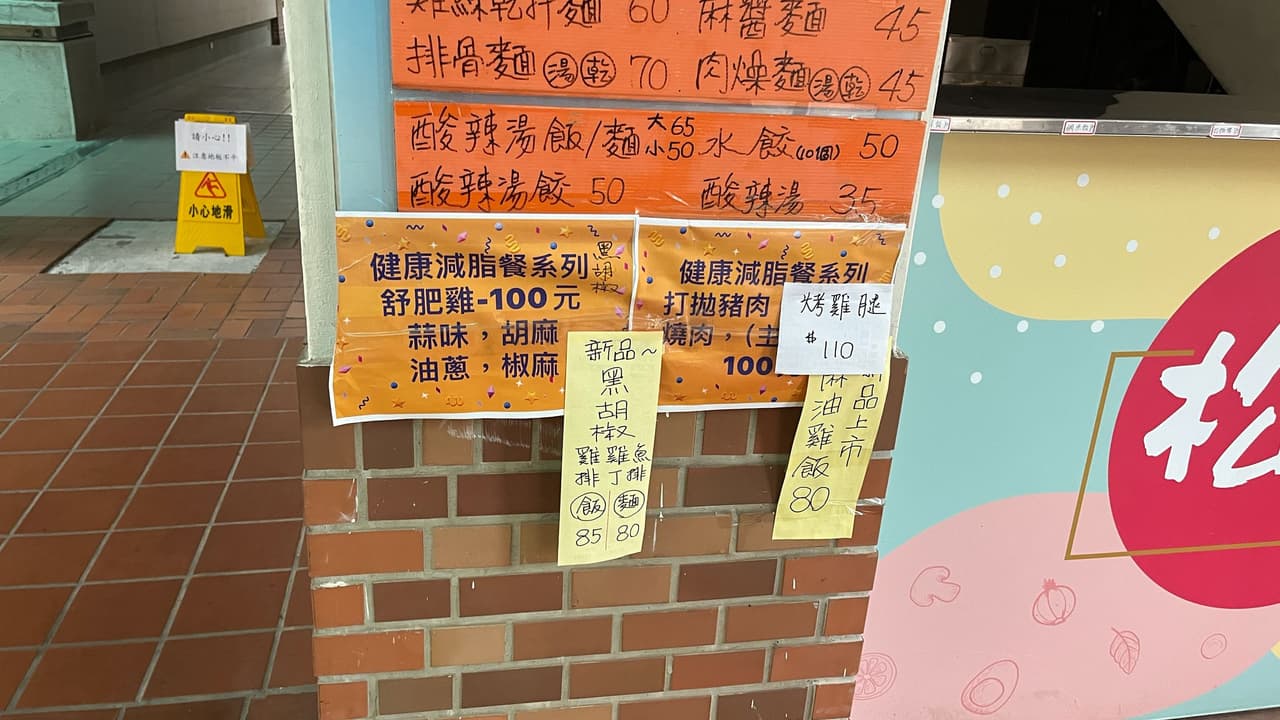 雞絲乾拌麵 60 麻醬麵 45
排骨麵 湯 乾 70 肉燥麵 湯 乾 45
酸辣湯飯/麵 大65 小50 水餃(10個) 50
酸辣湯餃 50 酸辣湯 35
健康減脂餐系列
舒肥雞-100元
蒜味，胡麻
油蔥，椒麻
黑胡椒
健康減脂餐系列
打拋豬肉
燒肉，(主
100
烤雞腿
$110
新品~
黑胡椒
雞排 雞丁 魚排
飯 麵
85 80
新品上市
麻油雞飯
80
請小心!!
注意地板不平
小心地滑
松